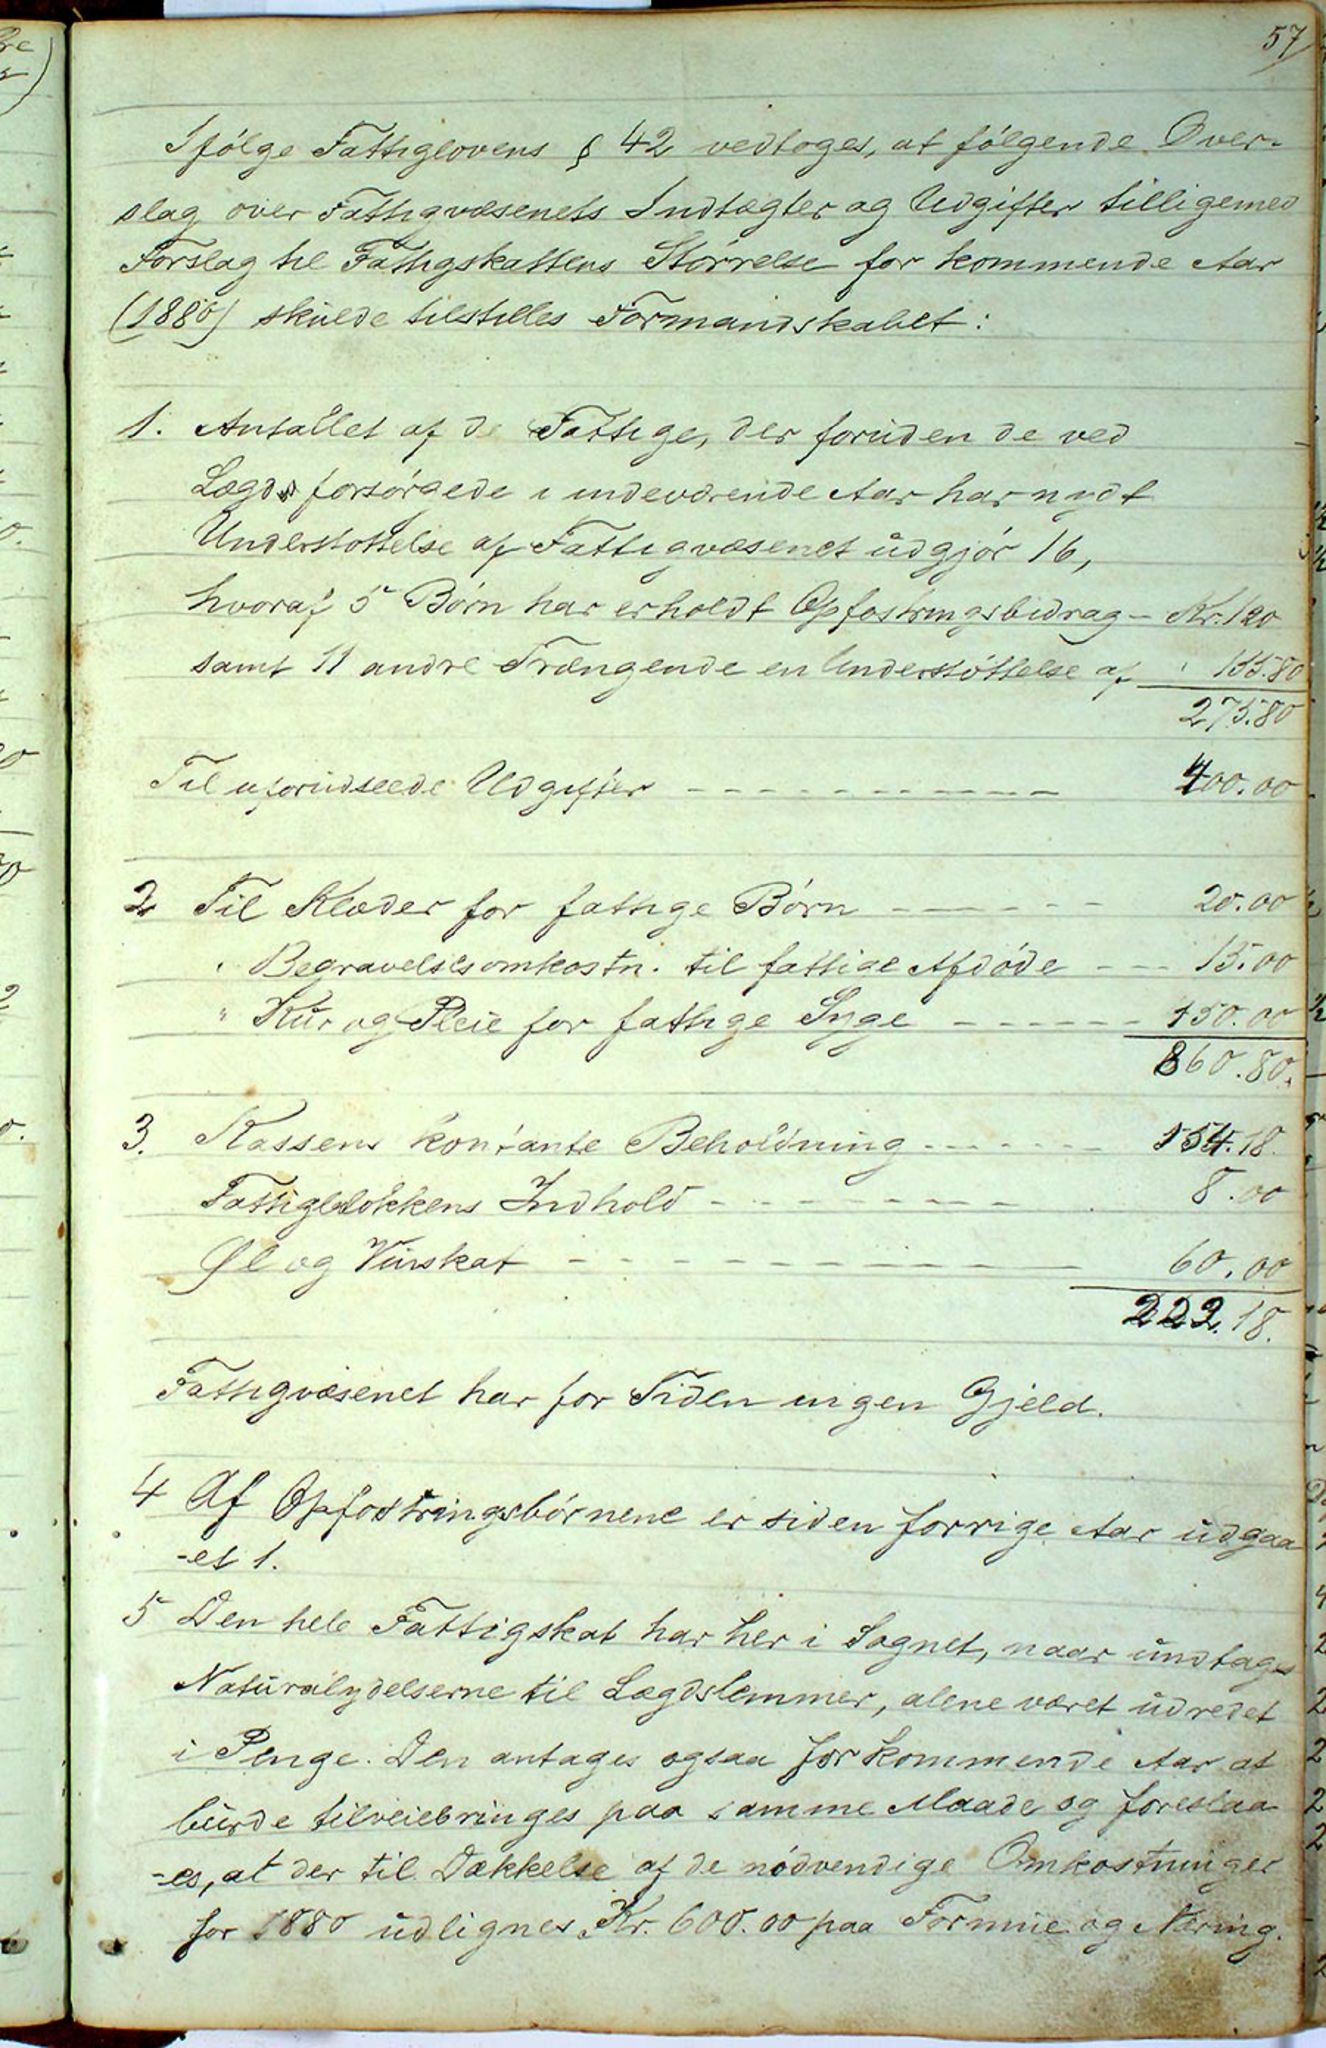 57
Ifølge Fattiglovens § 42 vedtoges, at følgende Over-
slag over Fattigvæsenets Indtægter og Udgifter tilligemed
Forslag til Fattigskattens Størrelse for kommende Aar
(1880) skulde tilstilles Formandskabet:
1. Antallet af de Fattige, der foruden de ved
Lægd forsørgede i indeværende Aar har nydt
Understøttelse af Fattigvæsenet udgjør 16,
hvoraf 5 Børn har erholdt Opfostringsbidrag - Kr. 120
samt 11 andre Trængende en Understøttelse af " 155.80
275.80
Til uforudseede Udgifter - - - - - - - - - - 400.00
2 Til Klæder for fattige Børn - - - - - 20.00
" Begravelsesomkostn. til fattige Afdøde - - - 15.00
" Kur og Pleie for fattige Syge - - - - - - 150.00
860.80.
3. Kassens kontante Beholdning - - - - - 154.18.
Fattigblokkens Indhold - - - - - - - - 8.00
Øl og Viinskat - - - - - - - - - - - 60.00
222.18.
Fattigvæsenet har for Tiden ingen Gjeld.
4 Af Opfostringsbørnene er siden forrige Aar udgaa
-et 1.
5 Den hele Fattigskat har her i Sognet, naar undtages
Naturalydelserne til Lægdslemmer, alene været udredet
i Penge. Den antages ogsaa for kommende Aar at
burde tilveiebringes paa samme Maade og foreslaa
-es, at der til Dækkelse af de nødvendige Omkostninger
for 1880 udlignes Kr. 600.00 paa Formue og Næring.